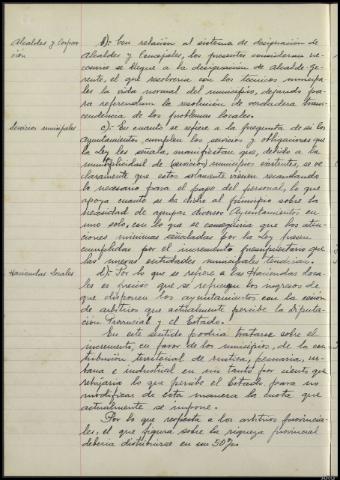 Alcaldes y Corpora-
ción
b): Con relación al sistema de designación de
Alcaldes y Concejales, los presentes consideran ne-
cesario se llegue a la designación de Alcalde-ge-
rente, el que resolvería con los técnicos municipa-
les la vida normal del municipio, dejando para
referendum la resolución de verdadera trans-
cendencia de los problemas locales.
Servicios municipales
c): En cuanto se refiere a la pregunta de si los
Ayuntamientos cumplen los servicios y obligaciones que
la Ley les señala, manifiestan que, debido a la
multiplicidad de (servicios) municipios existentes, se ve
claramente que estos solamente vienen recaudando
lo necesario para el pago del personal, lo que
apoya cuanto se ha dicho al principio sobre la
necesidad de agrupar diversos Ayuntamientos en
uno solo, con lo que se conseguiría que las aten-
ciones mínimas señaladas por la Ley fuesen
cumplidas por el incremento presupuestario que
las nuevas entidades municipales tendrían.
Haciendas locales
d): Por lo que se refiere a las Haciendas loca-
les es preciso que se refuercen los ingresos de
que disponen los ayuntamientos con la cesión
de arbitrios que actualmente percibe la Diputa-
ción Provincial y el Estado.
En este sentido podría tratarse sobre el
incremento, en favor de los municipios, de la con-
tribución territorial de rústica, pecuaria, ur-
bana e industrial en un tanto por ciento que
rebajaría lo que percibe el Estado para no
modificar de esta manera la cuota que
actualmente se impone.
Por lo que respecta a los arbitrios provincia-
les, el que figura sobre la riqueza provincial
debería distribuirse en un 50%